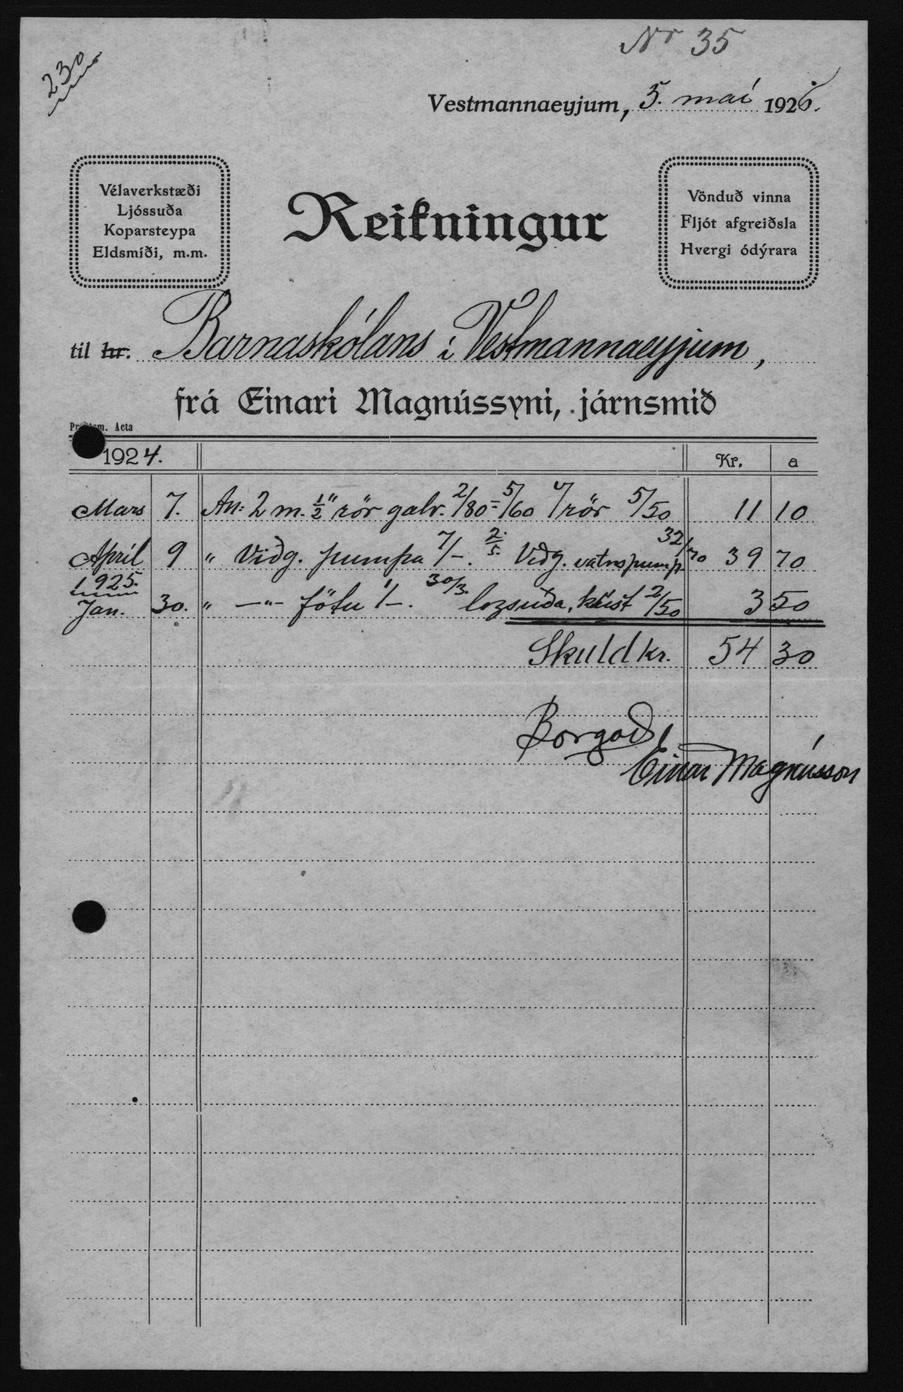 Nr 35
230
Vestmannaeyjum, 5. maí 1926.
Vélaverkstæði
Ljóssuða
Koparsteypa
Eldsmíði, m.m.
Reikningur
Vönduð vinna
Fljót afgreiðsla
Hvergi ódýrara
til hr. Barnaskólans í Vestmannaeyjum,
frá Einari Magnússyni, járnsmið
Prentsm. Acta
1924. Kr. a
Mars 7. An: 2 m. ½" rör galv. 2/80 = 5/60 rör 5/50 11 10
April 9 „ Viðg. pumpa 7/-. 2/5. Viðg. vatnspump 32/70 39 70
1925.
Jan. 30. „ -„- fötu 1/-. 30/3. logsuða, 2/50 3 50
Skuld kr. 54 30
Borgað
Einar Magnússon